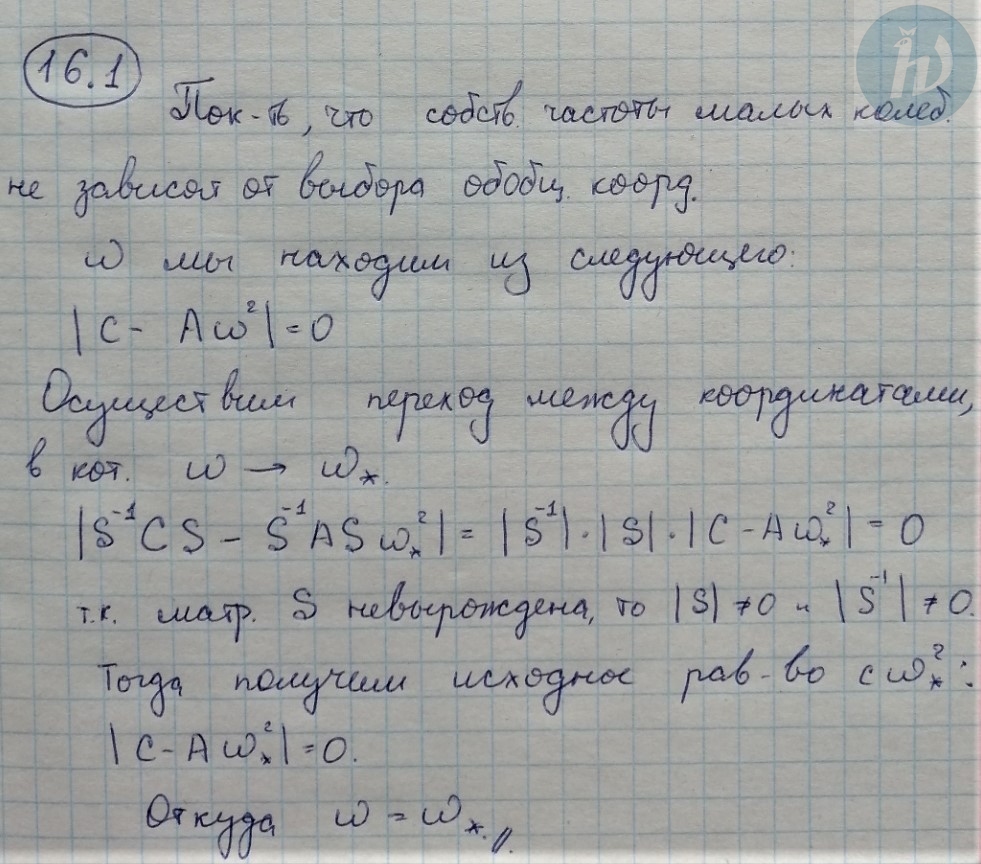 16.1
Пок-ть, что собств. частоты малых колеб.
не зависят от выбора обобщ. коорд.
ω мы находим из следующего:
|C - Aω²| = 0
Осуществим переход между координатами,
в кот. ω → ω*.
|S⁻¹CS - S⁻¹ASω*²| = |S⁻¹|·|S|·|C - Aω*²| = 0
т.к. матр. S невырождена, то |S| ≠ 0 и |S⁻¹| ≠ 0.
Тогда получим исходное рав-во с ω*²:
|C - Aω*²| = 0.
Откуда ω = ω*.